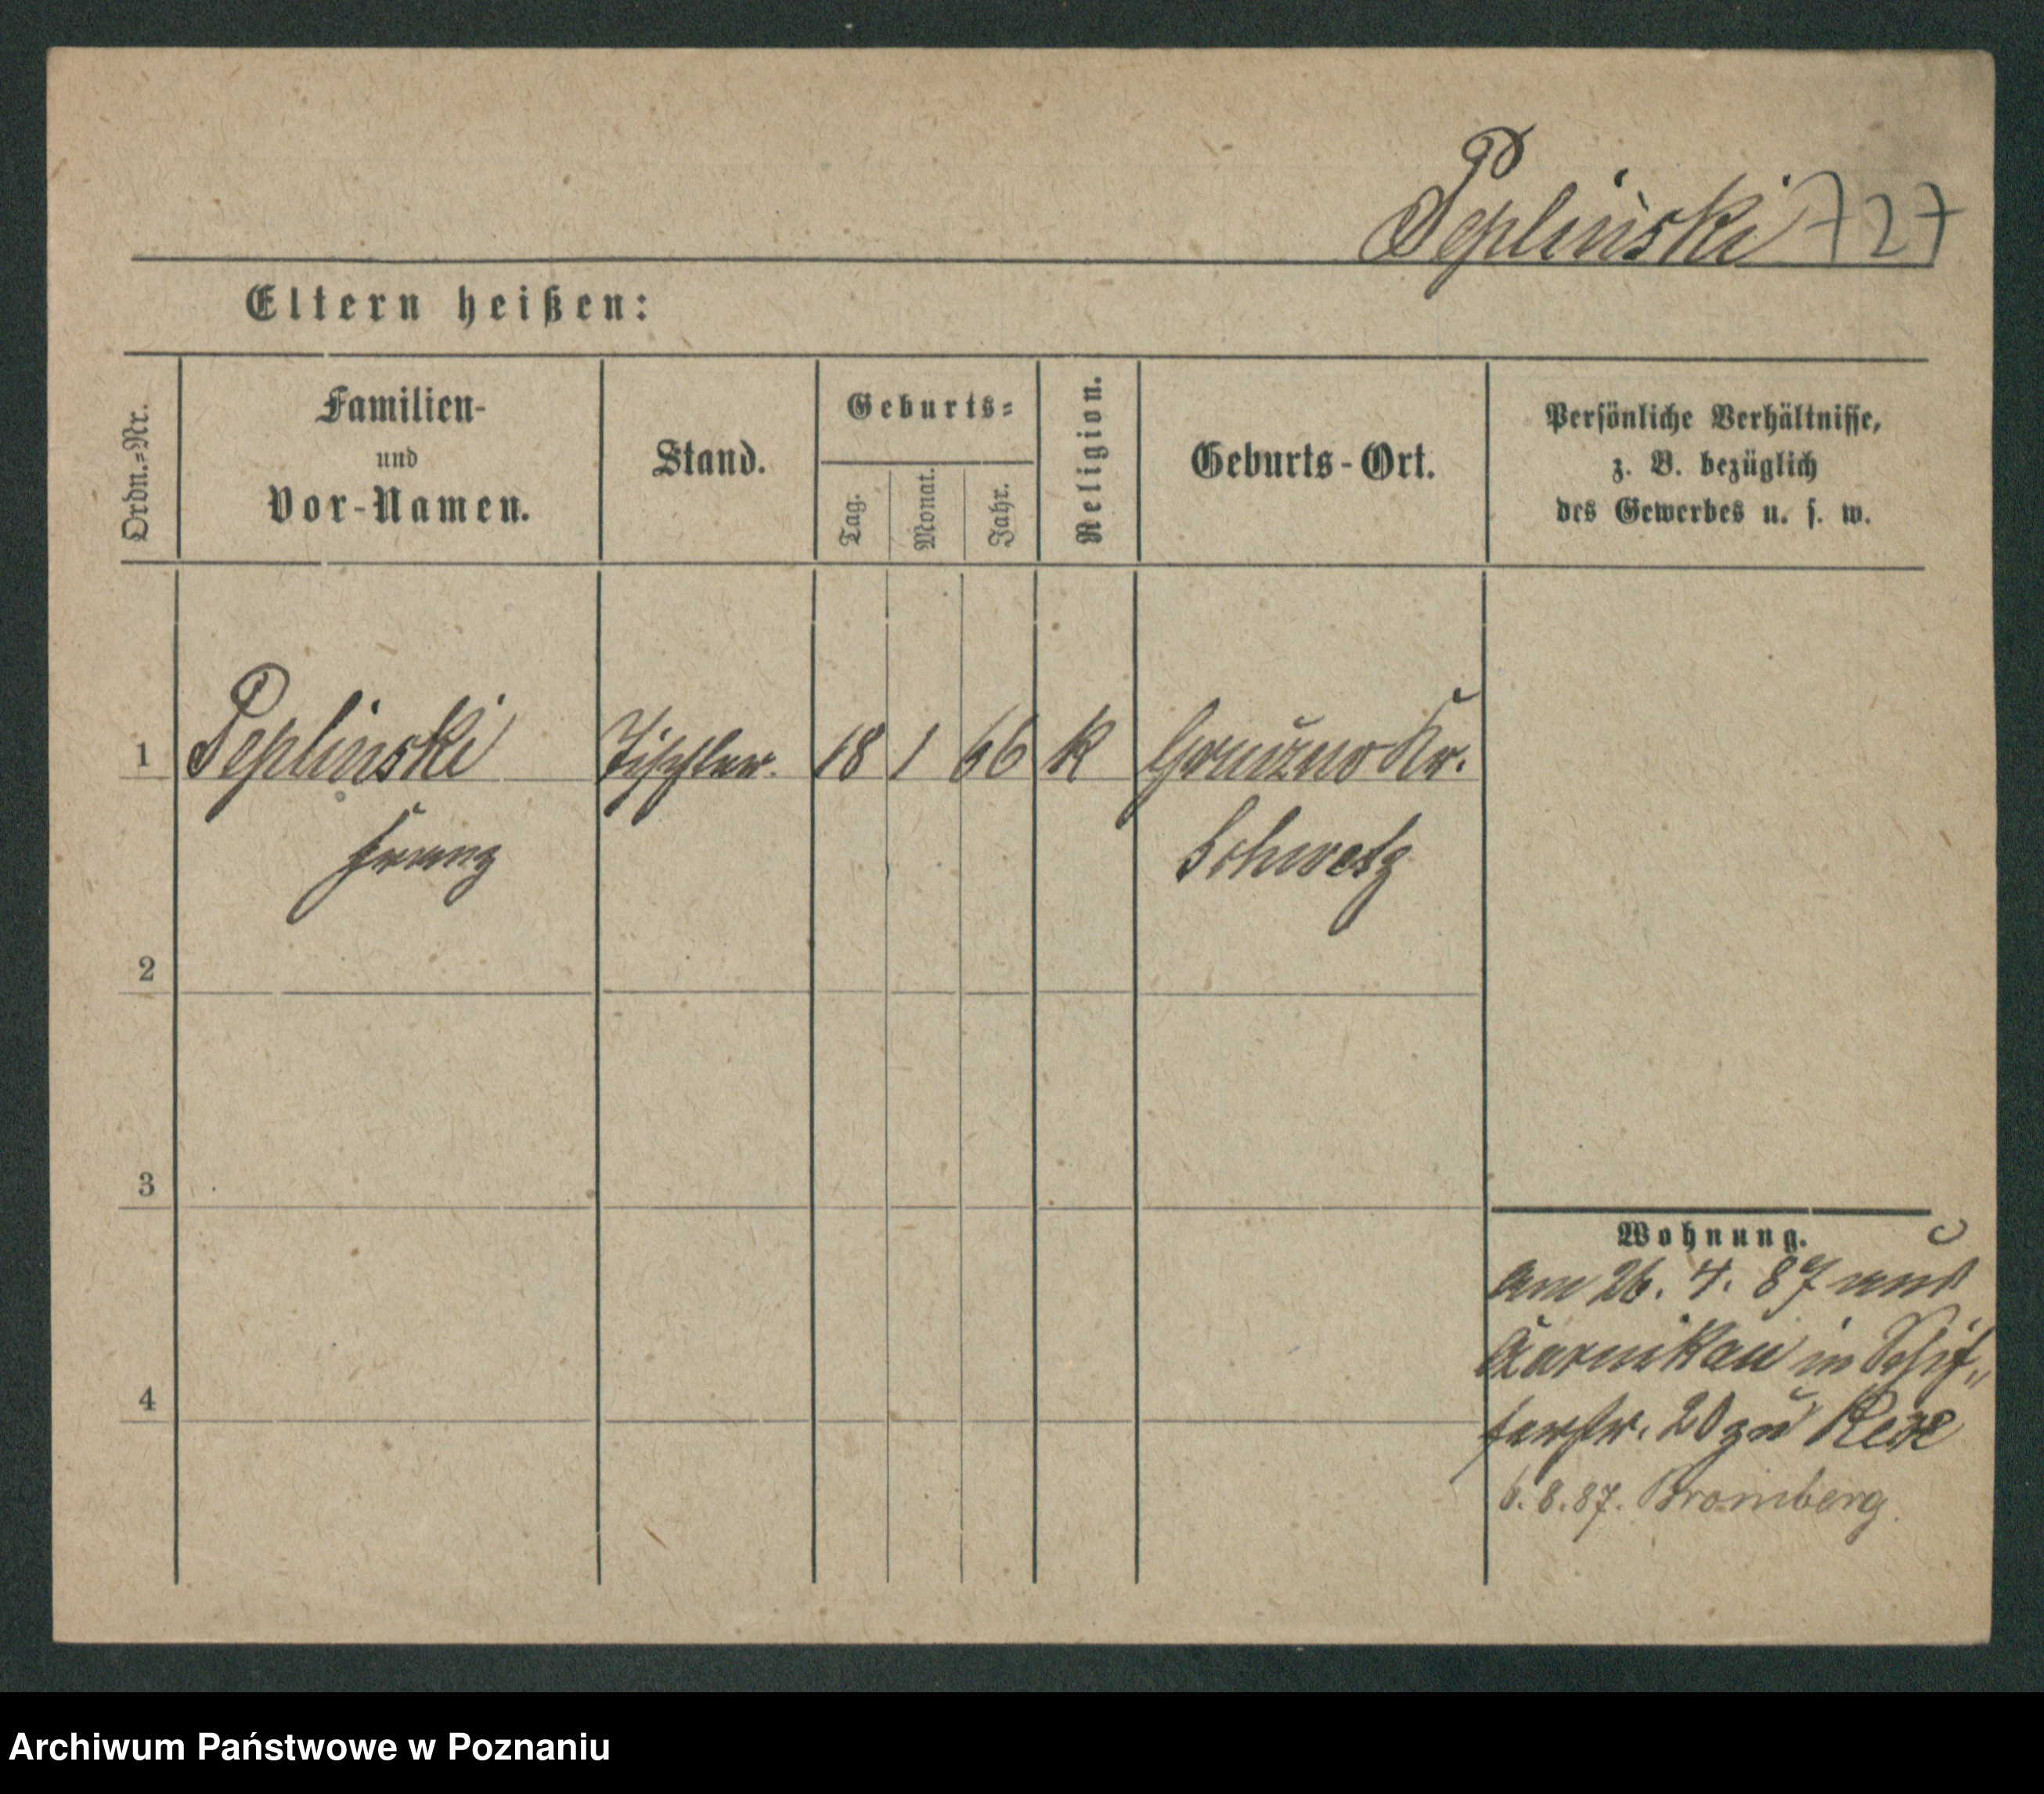 Peplinski 727
Eltern heißen:
Ordn.=Nr.
Familien-
und
Vor-Namen.
Stand.
Geburts=
Tag.
Monat.
Jahr.
Religion.
Geburts-Ort.
Persönliche Verhältnisse,
z. B. bezüglich
des Gewerbes u. s. w.
1 Peplinski Tischler. 18 1 66 K Gruczno Kr.
Franz Schwetz
2
3
Wohnung.
am 26. 4. 87 aus
Czarnikau in Schif„
4
ferstr. 20 zu
6. 8. 87. Bromberg.
Archiwum Państwowe w Poznaniu